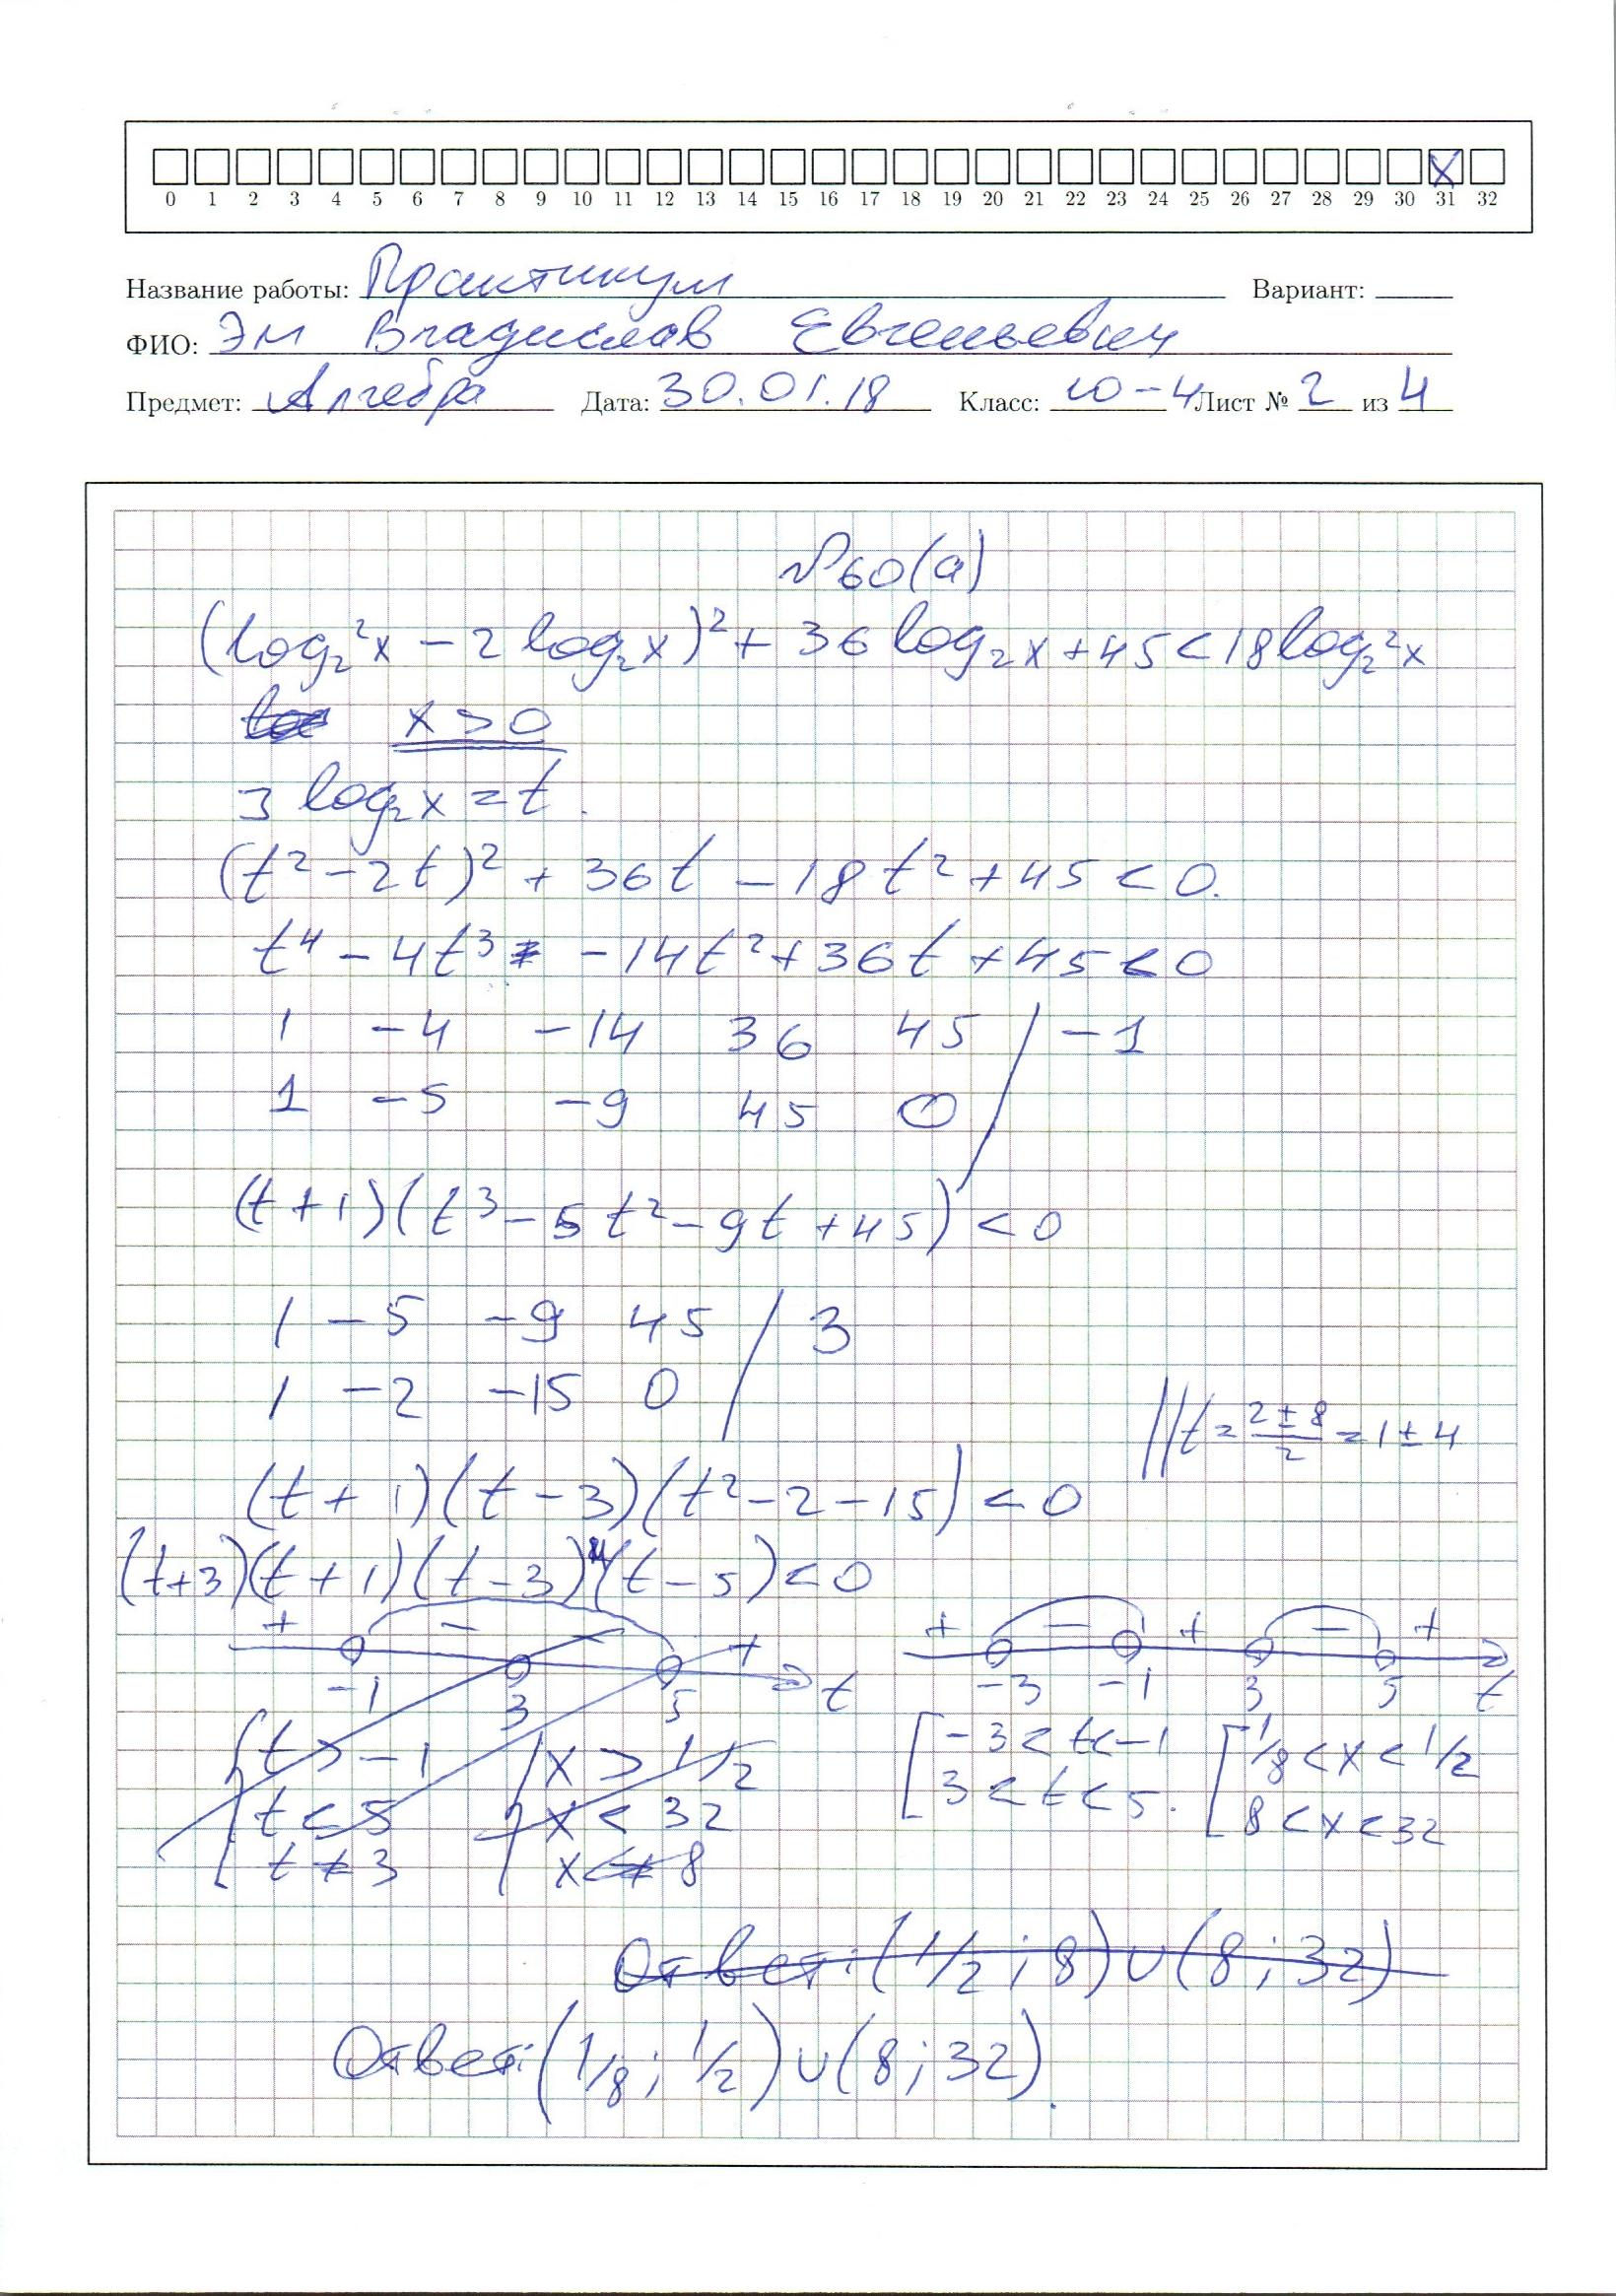 0 1 2 3 4 5 6 7 8 9 10 11 12 13 14 15 16 17 18 19 20 21 22 23 24 25 26 27 28 29 30 31 32
Название работы: Практикум Вариант:
ФИО: Эм Владислав Евгеньевич
Предмет: Алгебра Дата: 30.01.18 Класс: 10-4 Лист № 2 из 4
№60(а)
(log₂²x - 2 log₂x)² + 36 log₂x + 45 < 18 log₂²x
x > 0
З log₂x = t.
(t² - 2t)² + 36t - 18t² + 45 < 0.
t⁴ - 4t³ - 14t² + 36t + 45 < 0
1 -4 -14 36 45 / -1
1 -5 -9 45 0
(t + 1)(t³ - 5t² - 9t + 45) < 0
1 -5 -9 45 / 3
1 -2 -15 0
// t = (2 ± 8)/2 = 1 ± 4
(t + 1)(t - 3)(t² - 2 - 15) < 0
(t+3)(t + 1)(t - 3)(t - 5) < 0
+ - - + + - + - +
-1 3 5 t -3 -1 3 5 t
{ t > -1 { x > 1/2 [ -3 < t < -1 [ 1/8 < x < 1/2
t < 5 x < 32 3 < t < 5. 8 < x < 32
t ≠ 3 x ≠ 8
Ответ: (1/2; 8) ∪ (8; 32)
Ответ: (1/8; 1/2) ∪ (8; 32).